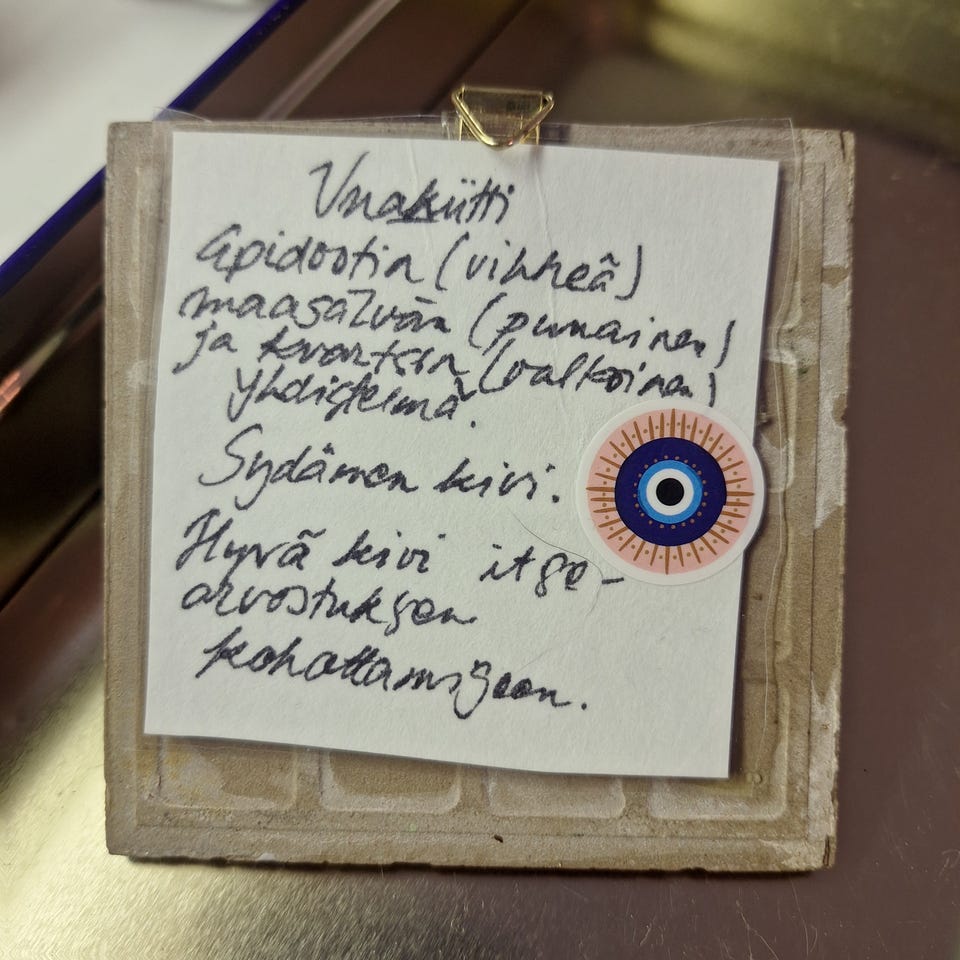 Unakiitti
Epidootin (vihreä)
maasälvän (punainen)
ja kvartsin (valkoinen)
yhdistelmä.
Sydämen kivi.
Hyvä kivi itse-
arvostuksen
kohottamiseen.